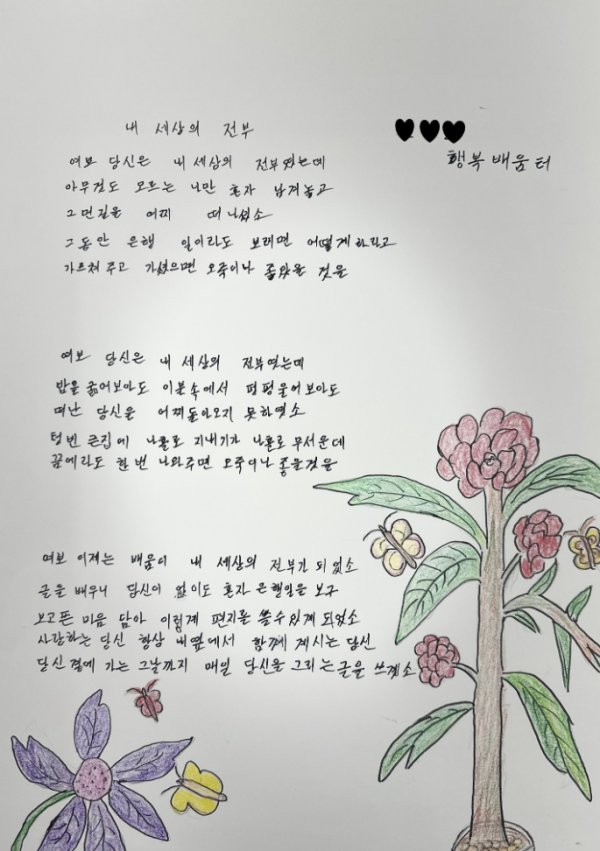 내 세상의 전부
행복 배움 터
여보 당신은 내 세상의 전부였는데
아무것도 모르는 나만 혼자 남겨놓고
그먼길을 어찌 떠나셨소
그동안 은행 일이라도 보래면 어떻게하라고
가르쳐 주고 가셨으면 오죽이나 좋았을 것을
여보 당신은 내 세상의 전부였는데
밥을 굶어보아도 이불속에서 펑펑울어보아도
떠난 당신을 어찌돌아오지 못하였소
텅빈 큰집에 나홀로 지내기가 나홀로 무서운데
꿈에라도 한번 나와주면 오죽이나 좋을것을
여보 이제는 배움이 내 세상의 전부가 되었소
글을 배우니 당신이 없이도 혼자 은행일을 보구
보고픈 마음 담아 이렇게 편지를 쓸수있게 되었소
사랑하는 당신 항상 내옆에서 함께 계시는 당신
당신곁에 가는 그날까지 매일 당신을 그리는 글을 쓰겠소